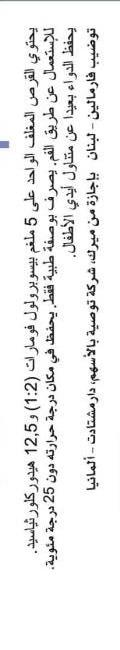 يحتوي القرص المغلف الواحد على 5 ملغم بيسوبرولول فومارات (1:2) و 12,5 هيدروكلورثيازيد.
للإستعمال عن طريق الفم. يصرف بوصفة طبية فقط. يحفظ في مكان درجة حرارته دون 25 درجة مئوية.
يحفظ الدواء بعيدا عن متناول أيدي الأطفال.
توضيب فارمالين - لبنان بإجازة من ميرك، شركة توصية بالأسهم، دارمشتادت - ألمانيا